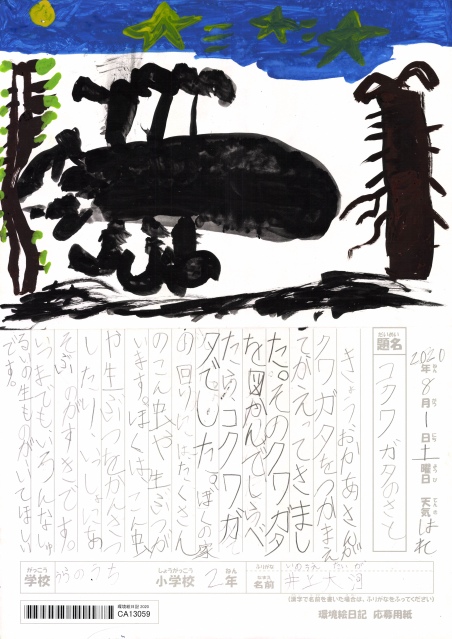 2020年8月1日土曜日 天気はれ
ねん がつ にち ようび てんき
だいめい
題名 コクワガタのさと
きょうおかあさんが
クワガタをつかまえ
てかえってきまし
た。そのクワガタ
を図かんでしらべ
たらコクワガ
タでした。ぼくの家
の回りにはたくさん
のこん虫や生ぶつが
います。ぼくはこん虫
や生ぶつをかんさつ
したり、いっしょにあ
そぶのがすきです。
いつまでもいろんなしゅ
るいの生ものがいてほしい
です。
がっこう しょうがっこう ねん
学校 小学校 2年
ふりがな いのうえ たいが
なまえ
名前 井上大河
(漢字で名前を書いた場合は、ふりがなをふってください)
環境絵日記 2020
CA13059
環境絵日記 応募用紙